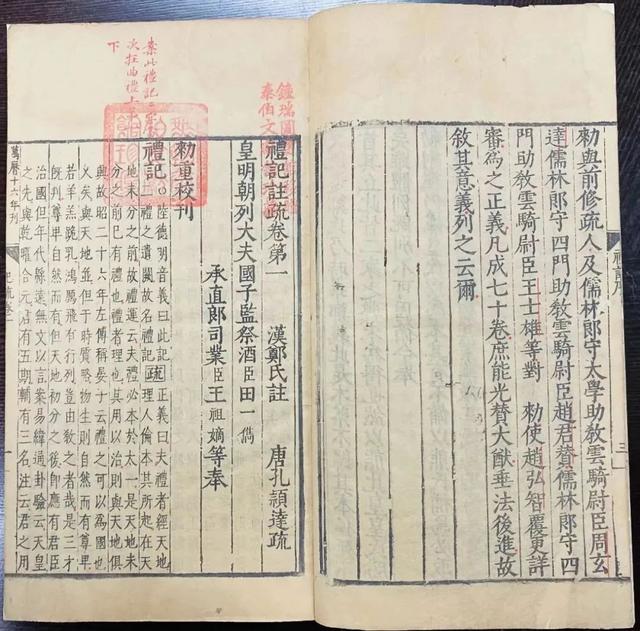 勑與前修疏人及儒林郎守太學助教雲騎尉臣周玄
達儒林郎守四門助教雲騎尉臣趙君贊儒林郎守四
門助教雲騎尉臣王士雄等對 勑使趙弘智覆更詳
審爲之正義凡成七十卷庶能光贊大猷垂法後進故
敘其意義列之云爾
禮記註疏卷第一 漢鄭氏註 唐孔穎達疏
皇明朝列大夫國子監祭酒臣田一儁
承直郎司業臣王祖嫡等奉
勑重校刊
禮記
○陸德明音義曰此記
二禮之遺闕故名禮記
疏
正義曰夫禮者經天地
理人倫本其所起在天
地未分之前故禮運云夫禮必本於太一是天地未
分之前已有禮也禮者理也其用以治則與天地俱
興故昭二十六年左傳稱晏子云禮之可以爲國也
久矣與天地並但于時質略物生則自然而有尊卑
若羊羔跪乳鴻鴈飛有行列豈由教之者哉是三才
既判尊卑自然而有但天地初分之後即應有君臣
治國但年代縣遠無文以言案易緯通卦驗云天皇
之先與乾曜合元君有五期輔有三名注云君之用
萬曆十六年刊
記疏卷一
一